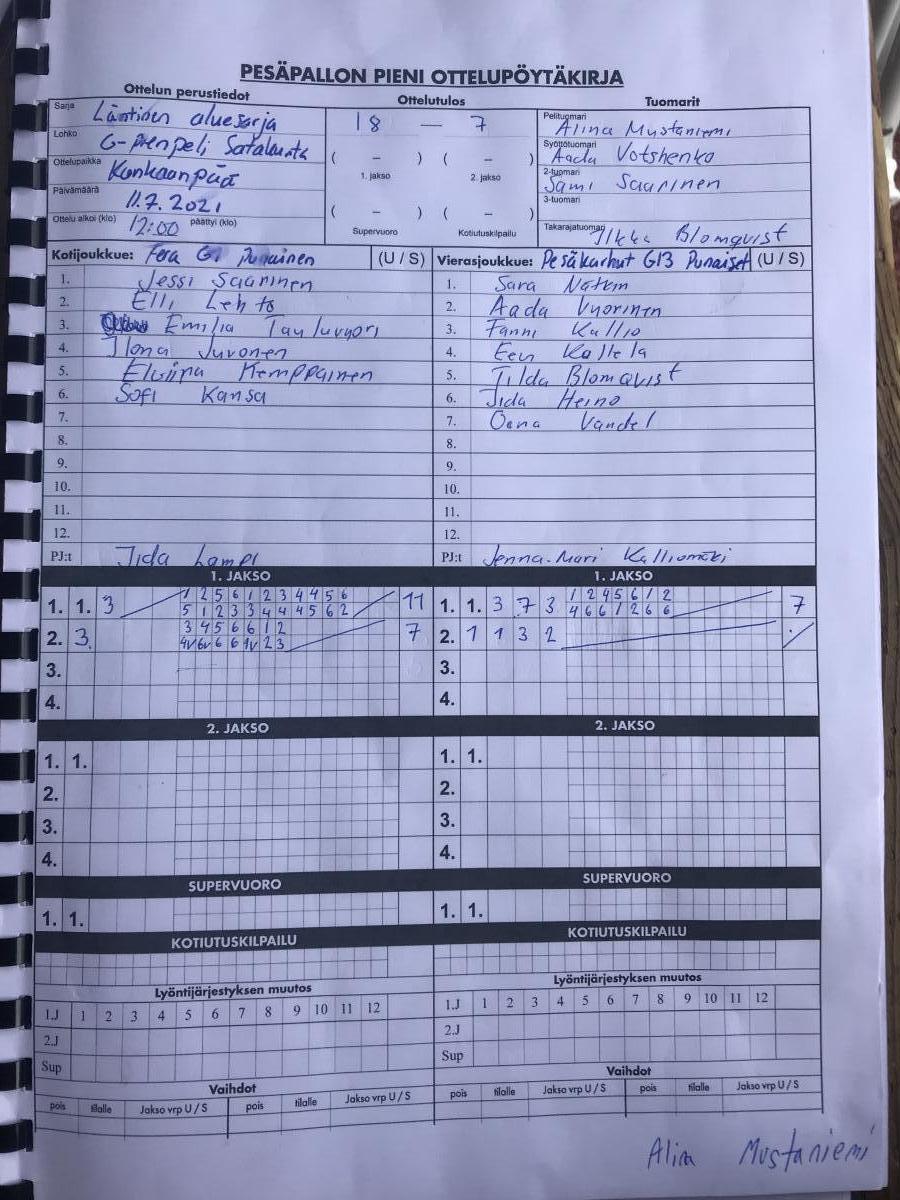 PESÄPALLON PIENI OTTELUPÖYTÄKIRJA
Ottelun perustiedot Ottelutulos Tuomarit
Sarja Läntinen aluesarja
Lohko G-pienpeli Satakunta
Ottelupaikka Kankaanpää
Päivämäärä 11.7.2021
Ottelu alkoi (klo) 12:00 päättyi (klo)
18 — 7
( – ) ( – )
1. jakso 2. jakso
( – ) ( – )
Supervuoro Kotiutuskilpailu
Pelituomari Alina Mustaniemi
Syöttötuomari Aada Votshenko
2-tuomari Sami Saarinen
3-tuomari
Takarajatuomari Ilkka Blomqvist
Kotijoukkue: Fera G1 Punainen (U / S)
1. Jessi Saarinen
2. Elli Lehto
3. Emilia Tauluvuori
4. Ilona Juvonen
5. Elviina Kemppainen
6. Sofi Kansa
7.
8.
9.
10.
11.
12.
PJ:t Iida Lampi
Vierasjoukkue: Pesäkarhut G13 Punaiset (U / S)
1. Sara
2. Aada Vuorinen
3. Fanni Kallio
4. Eevi Kallela
5. Tilda Blomqvist
6. Iida Heino
7. Oona Vandel
8.
9.
10.
11.
12.
PJ:t Jenna-Mari Kalliomäki
1. JAKSO
1. 1. 3 1 2 5 6 1 2 3 4 4 5 6 11
5 1 2 3 3 4 4 4 5 6 2
2. 3. 3 4 5 6 6 1 2 7
4V 6V 6 6 1V 2 3
3.
4.
1. JAKSO
1. 1. 3 7 3 1 2 4 5 6 1 2 7
4 6 6 1 2 6 6
2. 1 1 3 2
3.
4.
2. JAKSO
1. 1.
2.
3.
4.
2. JAKSO
1. 1.
2.
3.
4.
SUPERVUORO
1. 1.
SUPERVUORO
1. 1.
KOTIUTUSKILPAILU
KOTIUTUSKILPAILU
Lyöntijärjestyksen muutos
1.J 1 2 3 4 5 6 7 8 9 10 11 12
2.J
Sup
Lyöntijärjestyksen muutos
1.J 1 2 3 4 5 6 7 8 9 10 11 12
2.J
Sup
Vaihdot
pois tilalle Jakso vrp U / S pois tilalle Jakso vrp U / S
Vaihdot
pois tilalle Jakso vrp U / S pois tilalle Jakso vrp U / S
Alina Mustaniemi